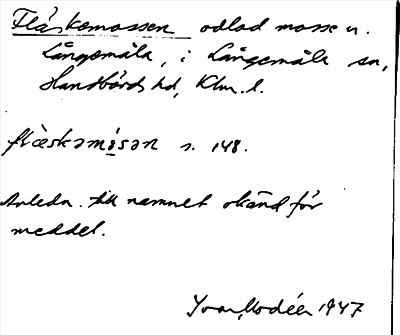 Fläskamossen odlad mosse n.
Långemåla, i Långemåla sn,
Handbörds hd, Klm. l.
flæskamȯsan s. 148.
Anledn. till namnet okänd för
meddel.
Ivar Modéer 1947